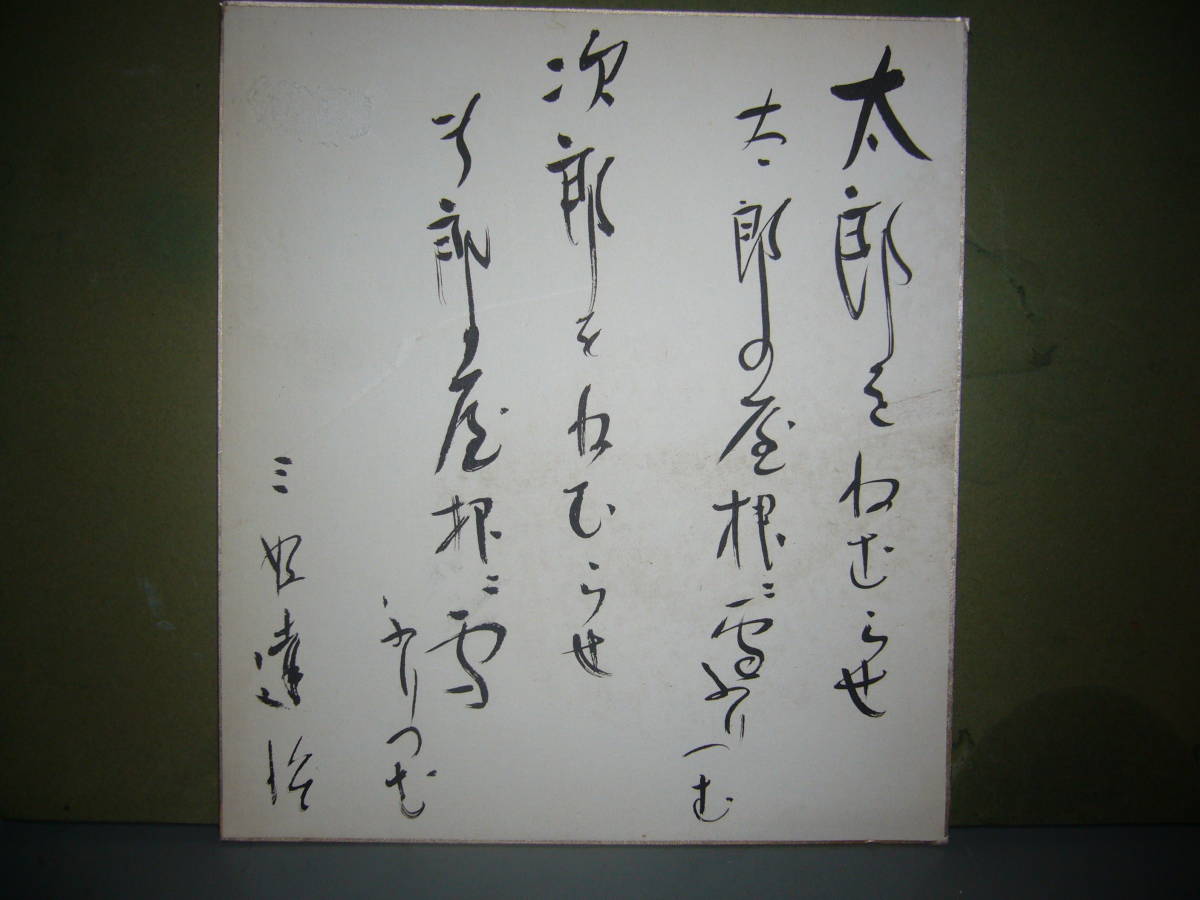 太郎をねむらせ
太郎の屋根に雪ふりつむ
次郎をねむらせ
次郎の屋根に雪
ふりつむ
三好達治